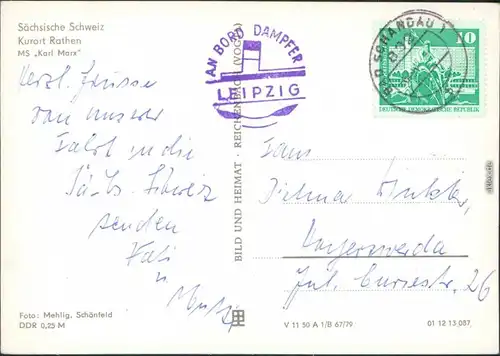 Sächsische Schweiz
Kurort Rathen
MS „Karl Marx"
Herzl. Grüsse
von unserer
Fahrt in die
Sächs. Schweiz
senden
u.
AN BORD DAMPFER
LEIPZIG
BAD SCHANDAU 1
10
DEUTSCHE DEMOKRATISCHE REPUBLIK
BILD UND HEIMAT · REICHENBACH (VOGTL)
Fam.
Dietmar Winkler
Hoyerswerda
Jul. Curiestr. 26
Foto: Mehlig, Schönfeld
DDR 0,25 M
V 11 50 A 1/B 67/79
01 12 13 087